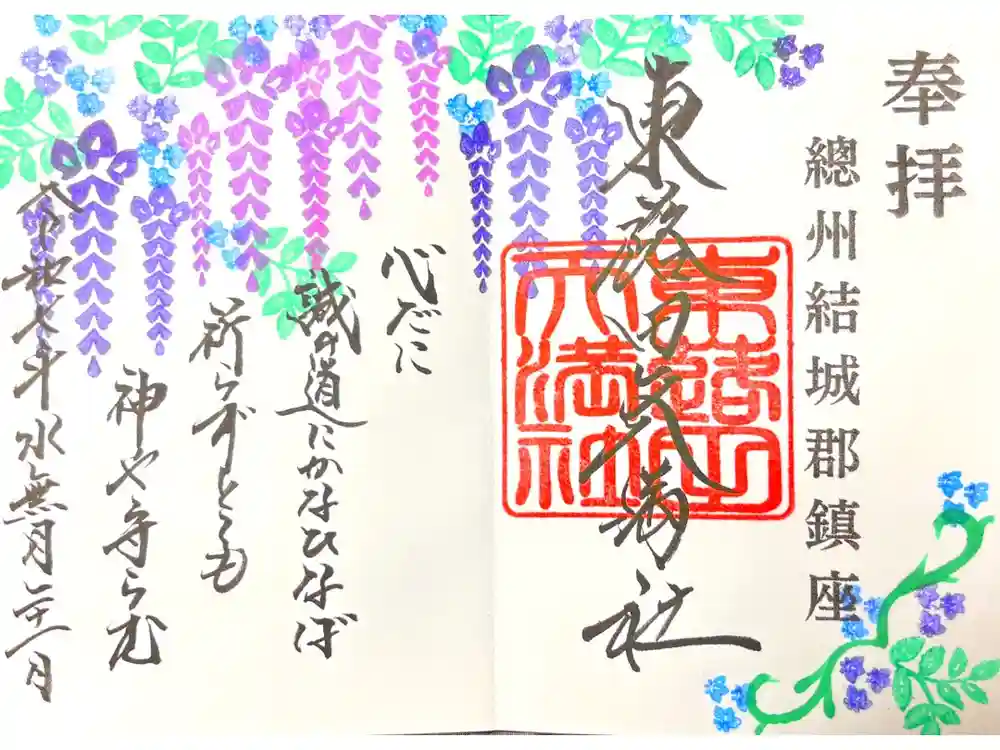 奉拝
總州結城郡鎮座
東蕗田天満社
東蕗田
天満社
心だに
誠の道にかなひなば
祈らずとても
神や守らむ
令和七年水無月二十一日